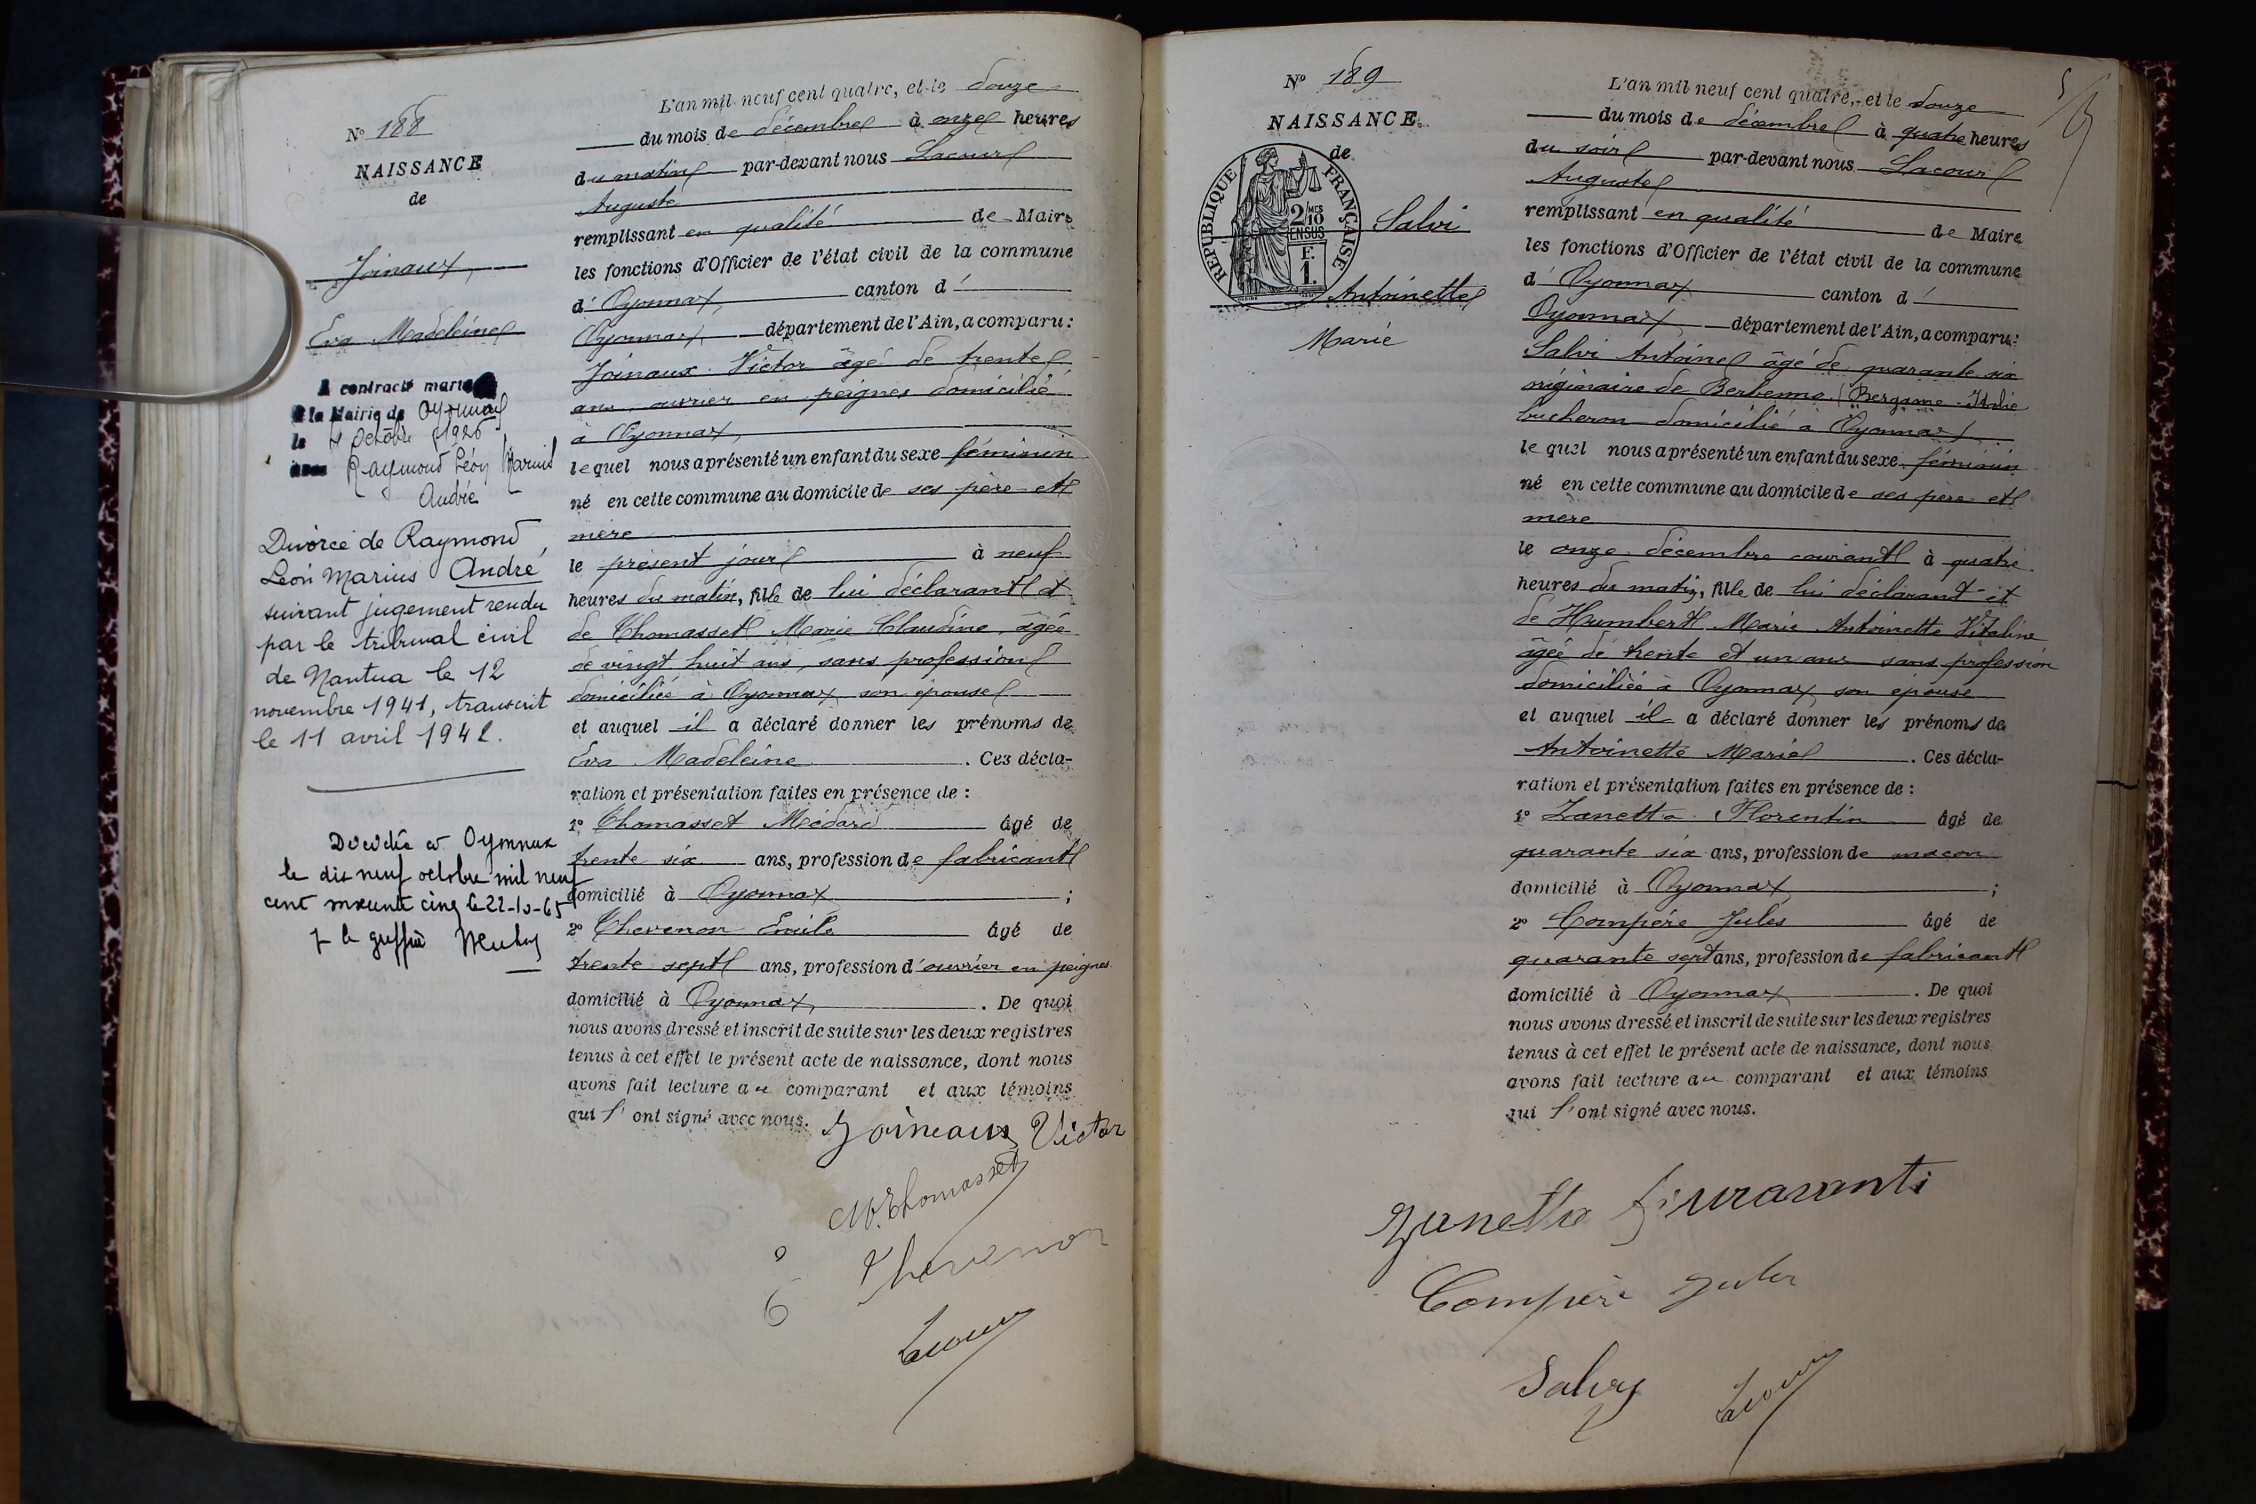 N° 188
NAISSANCE
de
Joinaux
Eva Madeleine
A contracté mariage
à la Mairie de Oyonnax
le 4 Octobre 1926
avec Raymond Léon Marius
André
Divorcée de Raymond
Léon Marius André
suivant jugement rendu
par le tribunal civil
de Nantua le 12
novembre 1941, transcrit
le 11 avril 1942.
Décédée à Oyonnax
le dix neuf octobre mil neuf
cent soixante cinq le 22-10-65
le greffier
L'an mil neuf cent quatre, et le douze
du mois de décembre à onze heures
du matin par-devant nous Lacour
Auguste
remplissant en qualité de Maire
les fonctions d'Officier de l'état civil de la commune
d'Oyonnax, canton d'
Oyonnax, département de l'Ain, a comparu :
Joinaux Victor âgé de trente
ans, ouvrier en peignes domicilié
à Oyonnax,
lequel nous a présenté un enfant du sexe féminin
né en cette commune au domicile de ses père et
mère
le présent jour à neuf
heures du matin, fille de lui déclarant et
de Thomasset Marie Claudine, âgée
de vingt huit ans, sans profession
domiciliée à Oyonnax, son épouse
et auquel il a déclaré donner les prénoms de
Eva Madeleine . Ces décla-
ration et présentation faites en présence de :
1° Thomasset Médard âgé de
trente six ans, profession de fabricant
domicilié à Oyonnax ;
2° Thevenon Emile âgé de
trente sept ans, profession d'ouvrier en peignes
domicilié à Oyonnax, . De quoi
nous avons dressé et inscrit de suite sur les deux registres
tenus à cet effet le présent acte de naissance, dont nous
avons fait lecture au comparant et aux témoins
qui l'ont signé avec nous.
Joineaux Victor
M. Thomasset
Thevenon
Lacour
N° 189
NAISSANCE
de
RÉPUBLIQUE FRANÇAISE
2/10 MES
EN SUS
F.
1.
Salvi
Antoinette
Marie
L'an mil neuf cent quatre, et le douze
du mois de décembre à quatre heures
du soir par-devant nous Lacour
Auguste
remplissant en qualité de Maire
les fonctions d'Officier de l'état civil de la commune
d'Oyonnax canton d'
Oyonnax, département de l'Ain, a comparu :
Salvi Antoine âgé de quarante six
originaire de Berbenno (Bergame - Italie
bucheron domicilié à Oyonnax
lequel nous a présenté un enfant du sexe féminin
né en cette commune au domicile de ses père et
mère
le onze décembre courant à quatre
heures du matin, fille de lui déclarant et
de Humbert Marie Antoinette Vitaline
âgée de trente et un ans sans profession
domiciliée à Oyonnax, son épouse
et auquel il a déclaré donner les prénoms de
Antoinette Marie . Ces décla-
ration et présentation faites en présence de :
1° Zanetta Florentin âgé de
quarante six ans, profession de maçon
domicilié à Oyonnax ;
2° Compère Jules âgé de
quarante sept ans, profession de fabricant
domicilié à Oyonnax . De quoi
nous avons dressé et inscrit de suite sur les deux registres
tenus à cet effet le présent acte de naissance, dont nous
avons fait lecture au comparant et aux témoins
qui l'ont signé avec nous.
Zanetta
Compère Jules
Salvy
Lacour